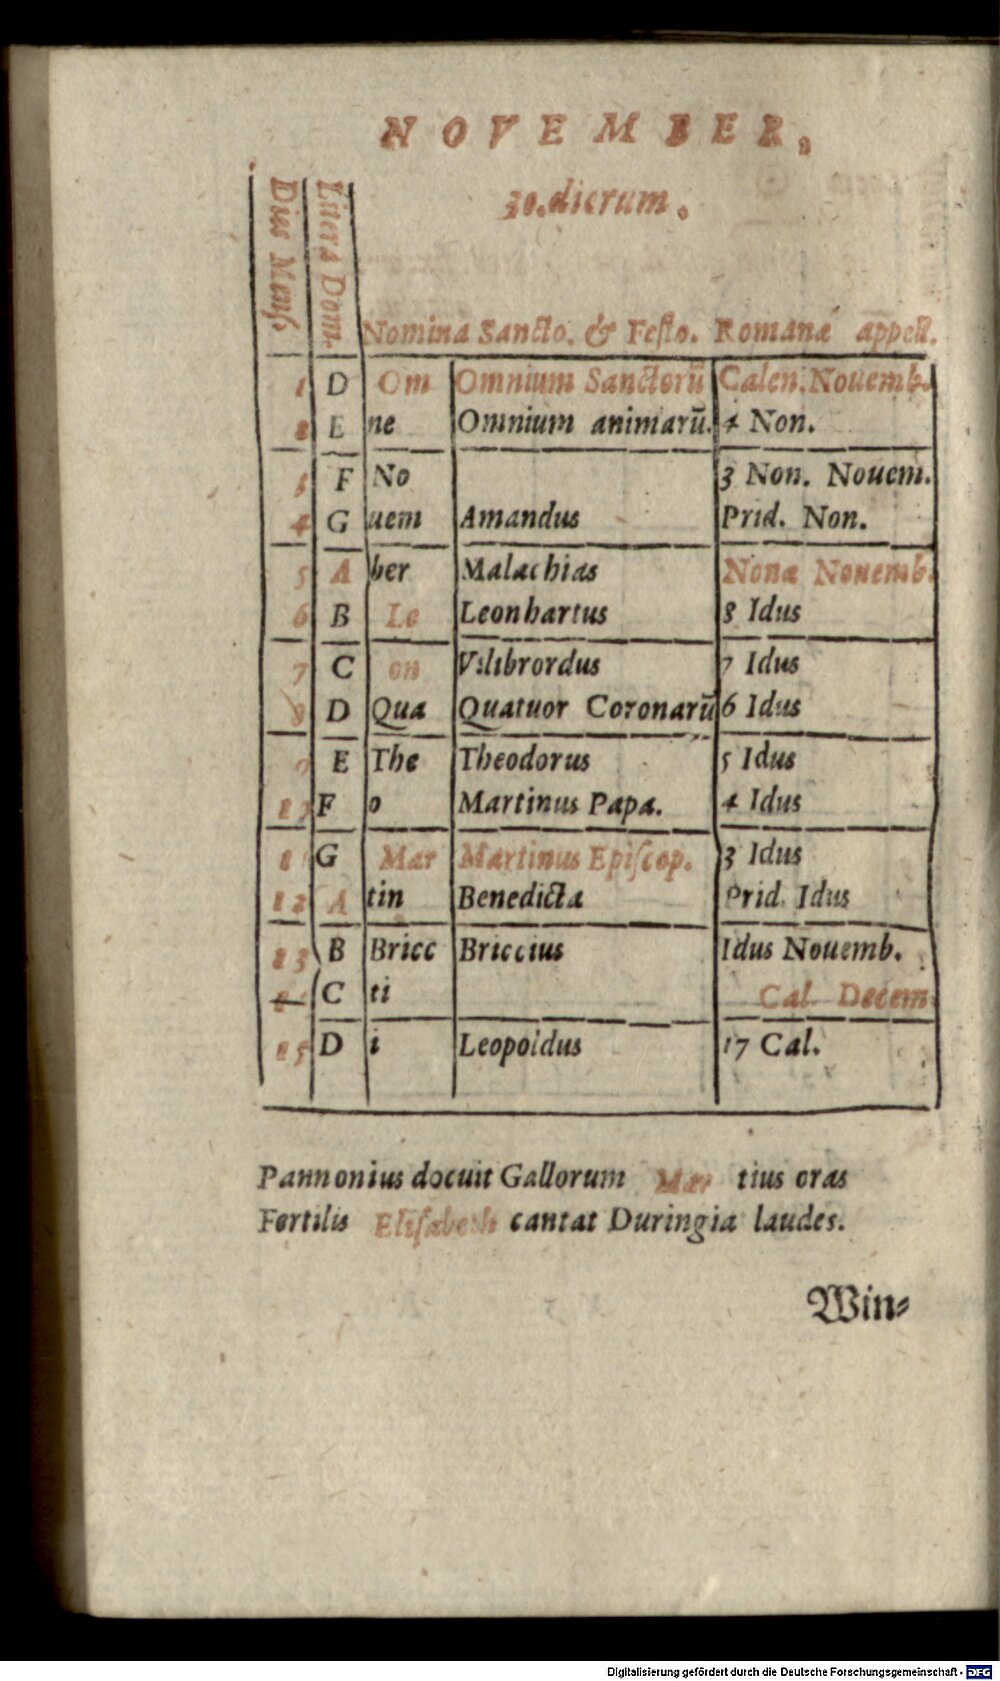 NOVEMBER,
30. dierum.
Dies Mens.
Litera Dom.
Nomina Sancto. & Festo. Romanæ appell.
1 D Om Omnium Sanctorũ Calen. Nouemb.
2 E ne Omnium animarũ. 4 Non.
3 F No 3 Non. Nouem.
4 G uem Amandus Prid. Non.
5 A ber Malachias Nonæ Nouemb.
6 B Le Leonhartus 8 Idus
7 C on Vilibrordus 7 Idus
8 D Qua Quatuor Coronarũ 6 Idus
9 E The Theodorus 5 Idus
F o Martinus Papa. 4 Idus
G Mar Martinus Episcop. 3 Idus
12 A tin Benedicta Prid. Idus
13 B Bricc Briccius Idus Nouemb.
C ti Cal. Decem.
15 D i Leopoldus 17 Cal.
Pannonius docuit Gallorum Mar tius oras
Fertilis Elisabeth cantat Duringia laudes.
Win⸗
Digitalisierung gefördert durch die Deutsche Forschungsgemeinschaft - DFG